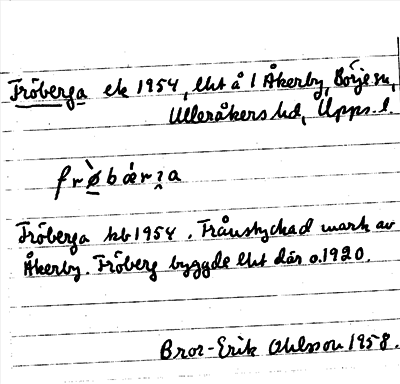 Fröberga ek 1954, lht å 1 Åkerby, Börje sn,
Ulleråkers hd, Upps. l.
frø̀bær̨a
Fröberga kb 1954. Frånstyckad mark av
Åkerby. Fröberg byggde lht där o. 1920.
Bror-Erik Ohlsson 1958.